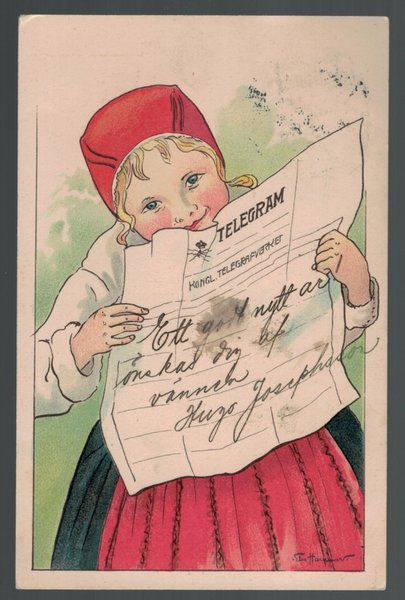 TELEGRAM
KONGL. TELEGRAFVERKET
Ett godt nytt år
önskas dig af
vännen
Hugo Josephsson